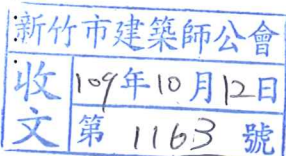 新竹市建築師公會
收文
109年10月12日
第 1163 號